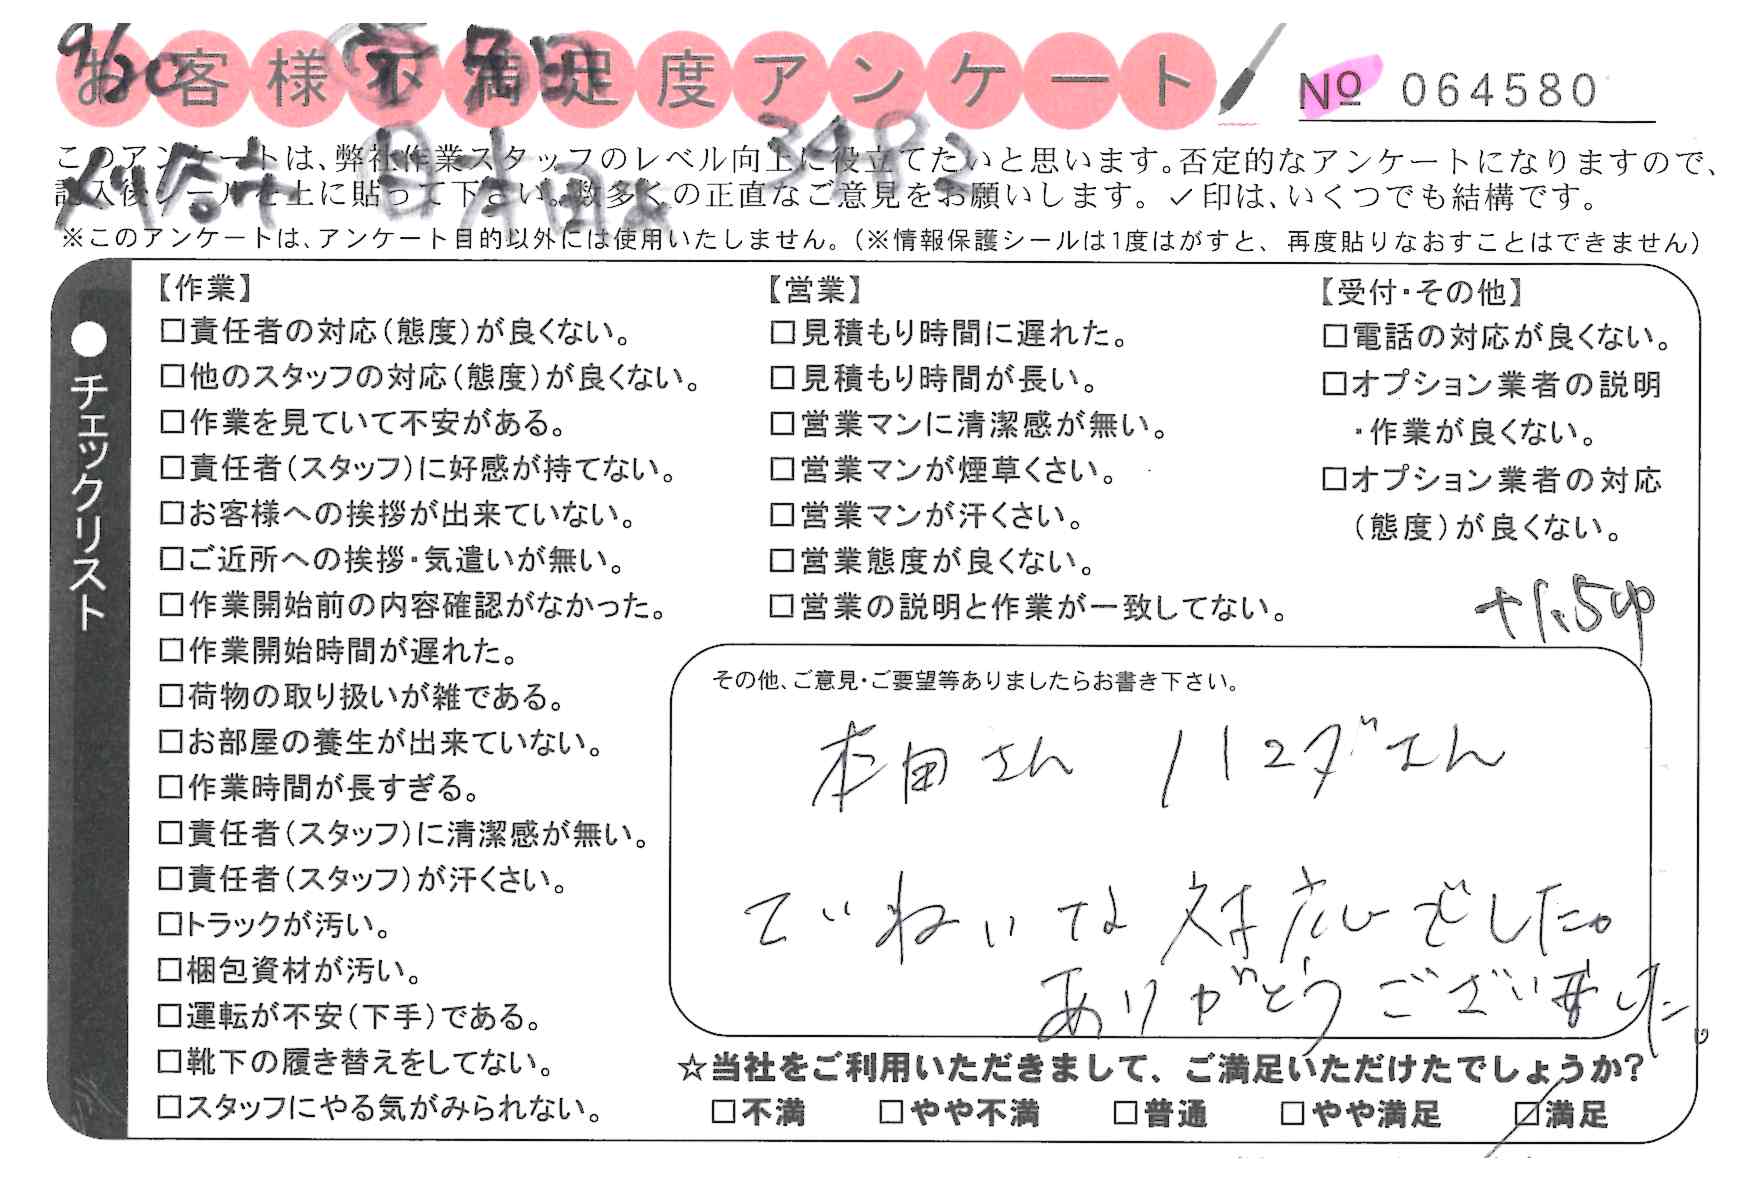 お客様不満足度アンケート
№ 064580
このアンケートは、弊社作業スタッフのレベル向上に役立てたいと思います。否定的なアンケートになりますので、
記入後シールを上に貼って下さい。数多くの正直なご意見をお願いします。✓印は、いくつでも結構です。
※このアンケートは、アンケート目的以外には使用いたしません。(※情報保護シールは1度はがすと、再度貼りなおすことはできません)
●チェックリスト
【作業】
□責任者の対応(態度)が良くない。
□他のスタッフの対応(態度)が良くない。
□作業を見ていて不安がある。
□責任者(スタッフ)に好感が持てない。
□お客様への挨拶が出来ていない。
□ご近所への挨拶・気遣いが無い。
□作業開始前の内容確認がなかった。
□作業開始時間が遅れた。
□荷物の取り扱いが雑である。
□お部屋の養生が出来ていない。
□作業時間が長すぎる。
□責任者(スタッフ)に清潔感が無い。
□責任者(スタッフ)が汗くさい。
□トラックが汚い。
□梱包資材が汚い。
□運転が不安(下手)である。
□靴下の履き替えをしてない。
□スタッフにやる気がみられない。
【営業】
□見積もり時間に遅れた。
□見積もり時間が長い。
□営業マンに清潔感が無い。
□営業マンが煙草くさい。
□営業マンが汗くさい。
□営業態度が良くない。
□営業の説明と作業が一致してない。
【受付・その他】
□電話の対応が良くない。
□オプション業者の説明
・作業が良くない。
□オプション業者の対応
(態度)が良くない。
その他、ご意見・ご要望等ありましたらお書き下さい。
本田さん ハマダさん
ていねいな対応でした。
ありがとうございました。
☆当社をご利用いただきまして、ご満足いただけたでしょうか?
□不満 □やや不満 □普通 □やや満足 ☑満足